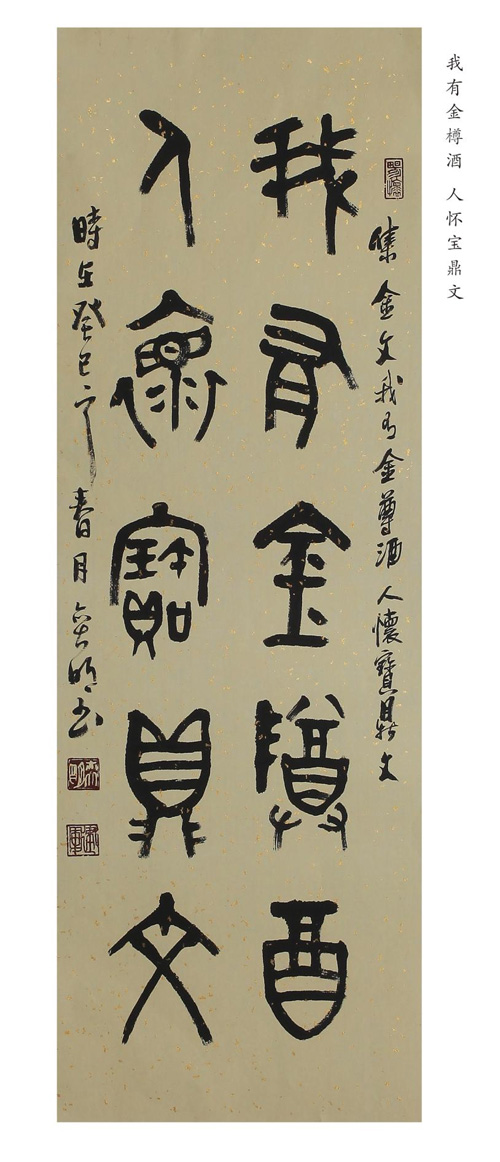 我有金樽酒 人怀宝鼎文
集金文我有金尊酒人懷寶鼎文
我有金尊酉
人褱寶鼎文
時在癸巳之春月 明书